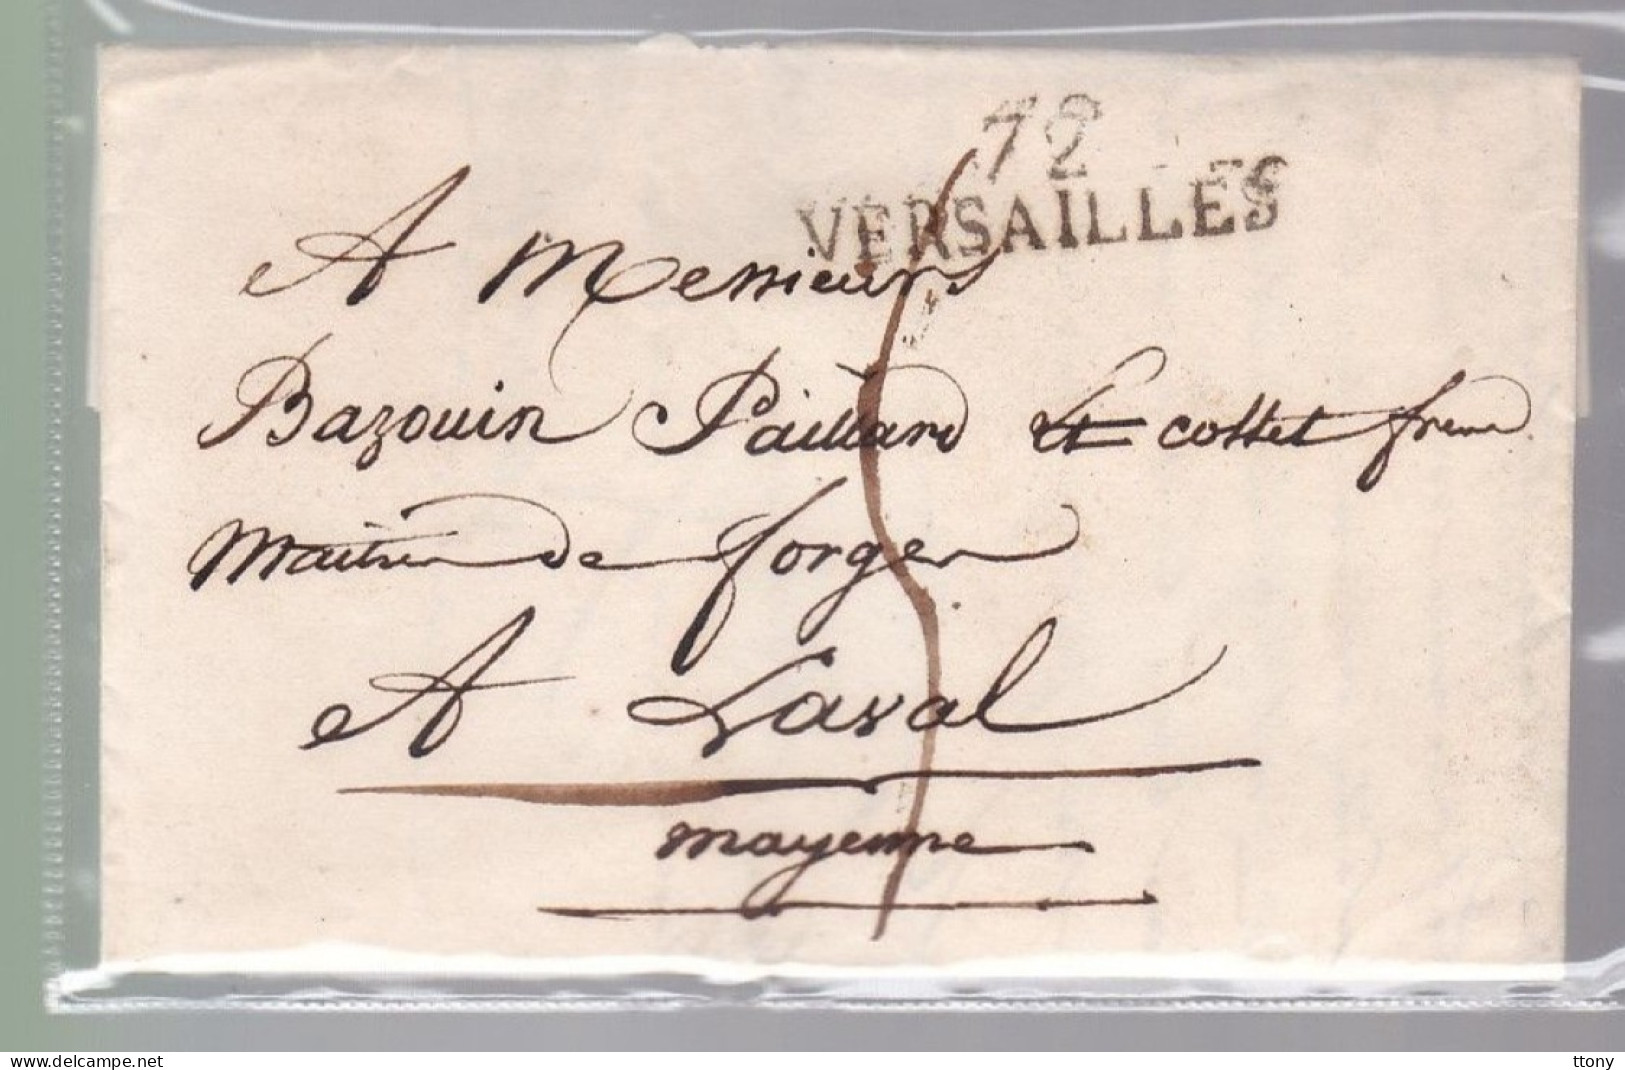 72
VERSAILLES
A Messieurs
Bazouin Paillard Et Cottet frères
Maitres de forges
A Laval
mayenne
5
www.delcampe.net
ttony